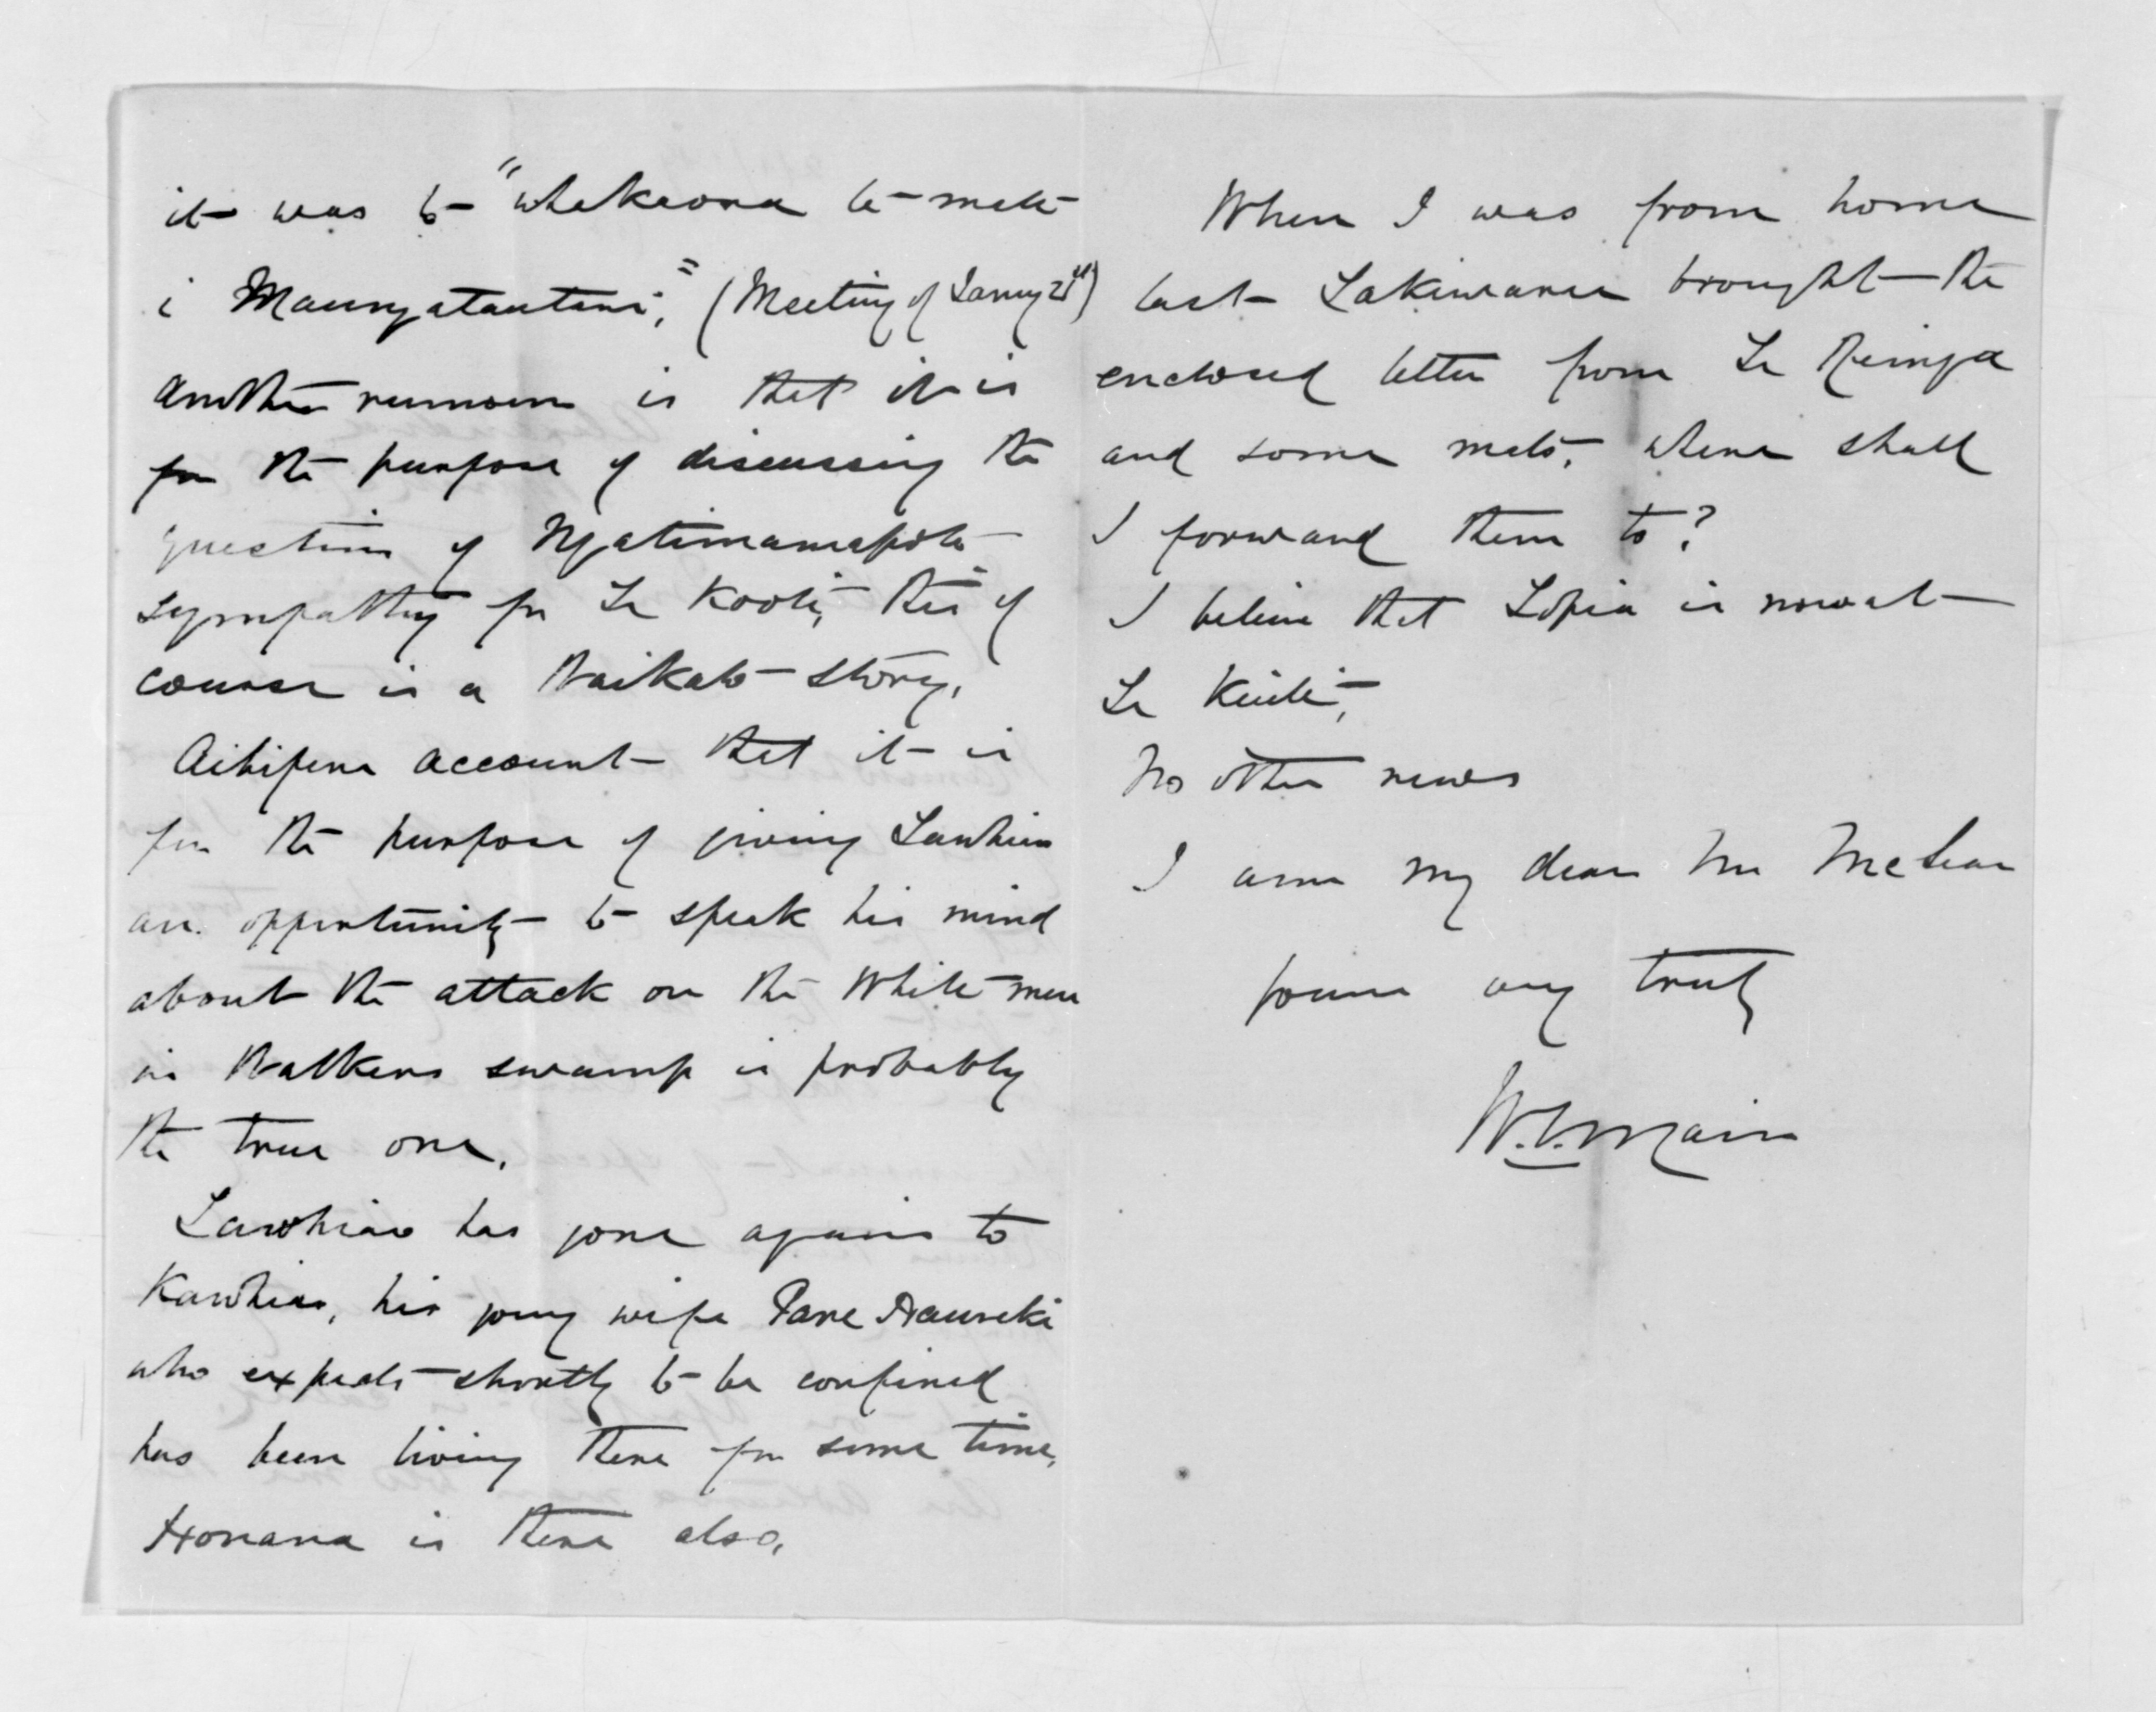 it was to "whakaora te mate
i Maungatautari," (Meeting of Jany 21st)
another rumour is that it is
for the purpose of discussing the
question of Ngatimaniapoto
sympathy for Te Kooti, this of
course is a Waikato story.
Aihipene account that it is
for the purpose of giving Tawhiao
an opportunity to speak his mind
about the attack on the White men
in Walkers swamp is probably
the true one.
Tawhiao has gone again to
Kawhia, his young wife Pare Hauraki
who expects shortly to be confined
has been living there for some time,
Honana is there also.
When I was from home
last Takiwaru brought the
enclosed letter from Te Reinga
and some mats, where shall
I forward them to?
I believe that Topia is now at
Te Kuiti,
No other news
I am my dear Mr McLean
yours very truly
W.G. Mair